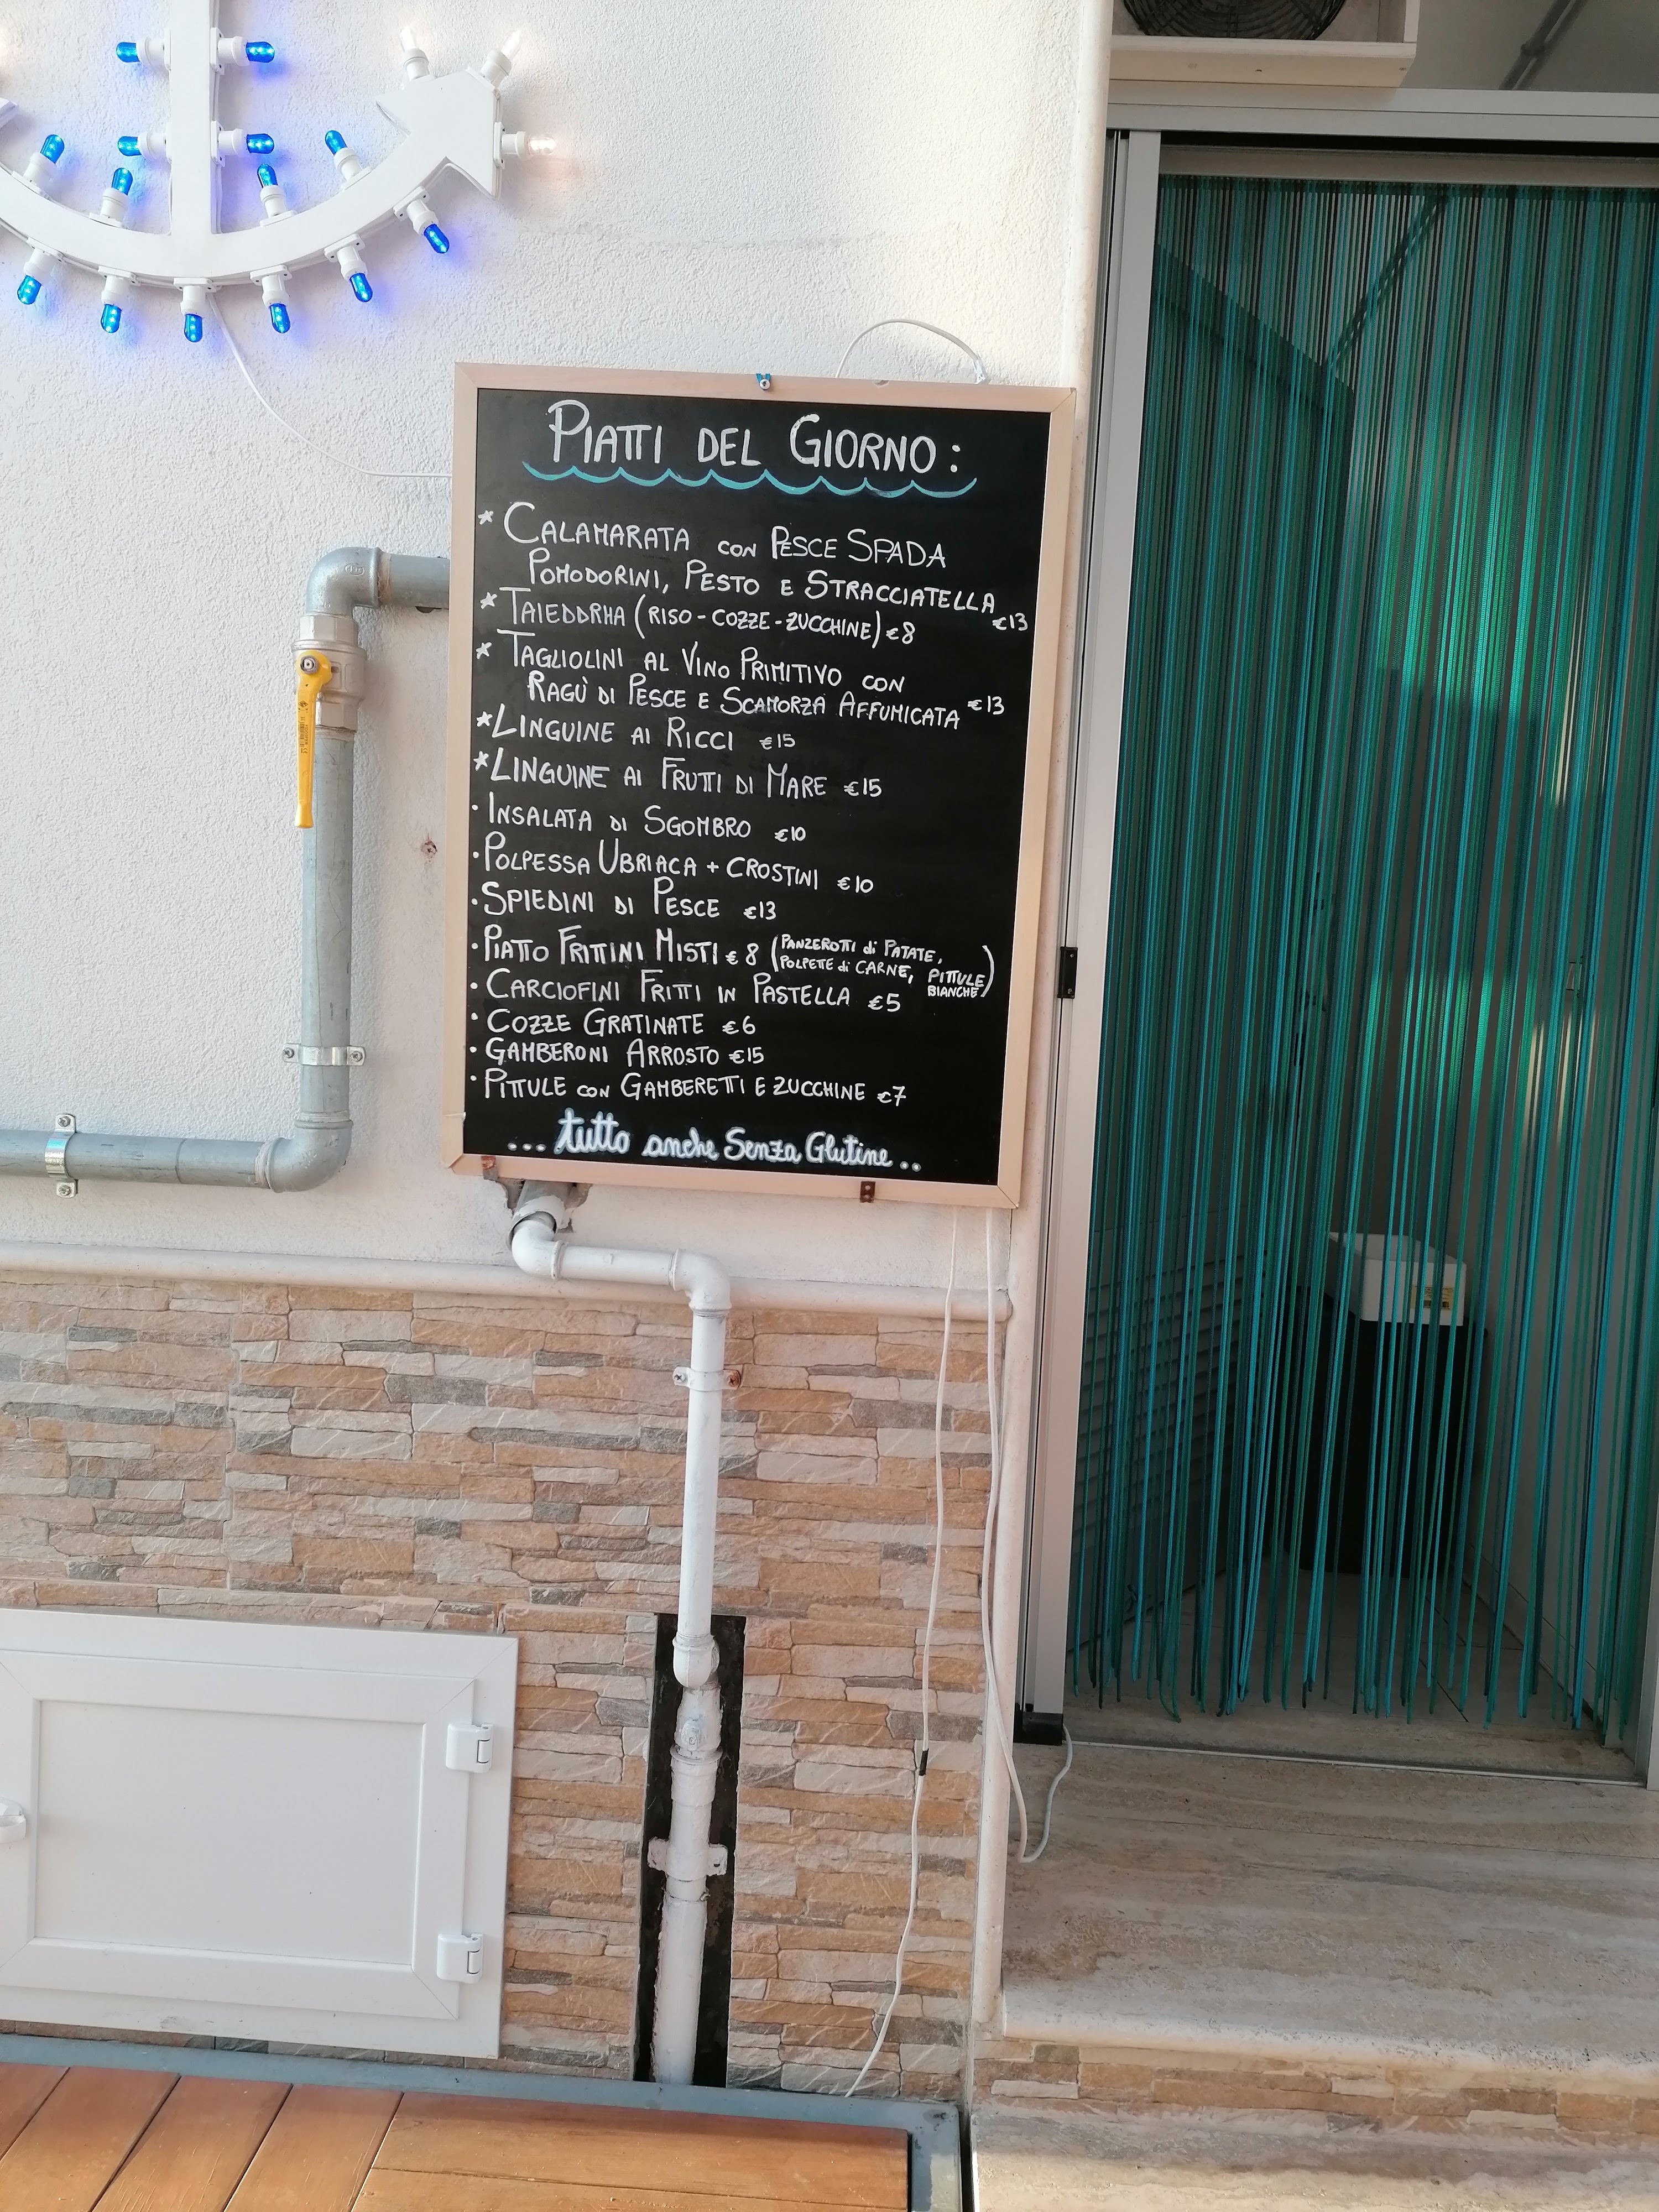 PIATTI DEL GIORNO:
* CALAMARATA CON PESCE SPADA
POMODORINI, PESTO E STRACCIATELLA €13
* TAIEDDRHA (RISO-COZZE-ZUCCHINE) €8
* TAGLIOLINI AL VINO PRIMITIVO CON
RAGÙ DI PESCE E SCAMORZA AFFUMICATA €13
* LINGUINE AI RICCI €15
* LINGUINE AI FRUTTI DI MARE €15
· INSALATA DI SGOMBRO €10
· POLPESSA UBRIACA + CROSTINI €10
· SPIEDINI DI PESCE €13
· PIATTO FRITTINI MISTI €8 (PANZEROTTI di PATATE,
POLPETTE di CARNE, PITTULE
BIANCHE)
· CARCIOFINI FRITTI IN PASTELLA €5
· COZZE GRATINATE €6
· GAMBERONI ARROSTO €15
· PITTULE CON GAMBERETTI E ZUCCHINE €7
... tutto anche Senza Glutine ..